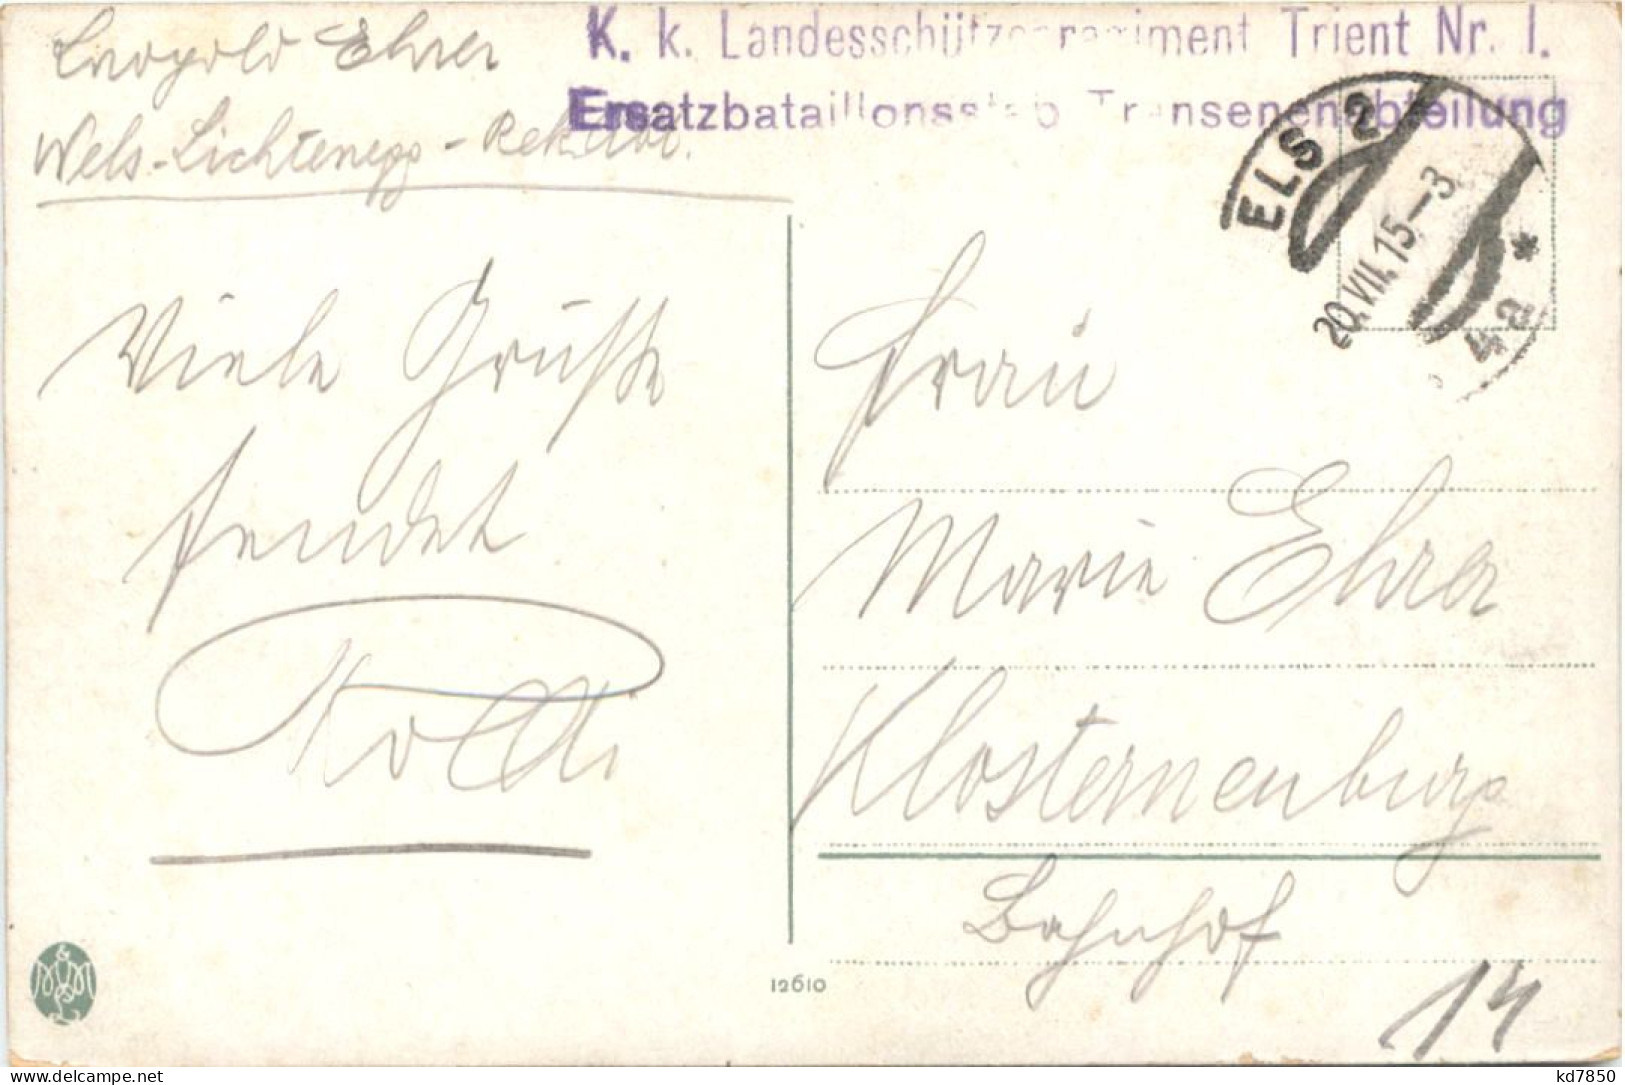 Leopold Ehrer
Wels-Lichtenegg-
K. k. Landesschützenregiment Trient Nr. I.
Ersatzbataillonsstab Transenenabteilung
ELS 2
20.VII.15-3
* 4a
Viele Grüße
sendet
Frau
Marie Ehrer
Klosterneuburg
Bahnhof
14
12610
Delcampe.net
kd7850